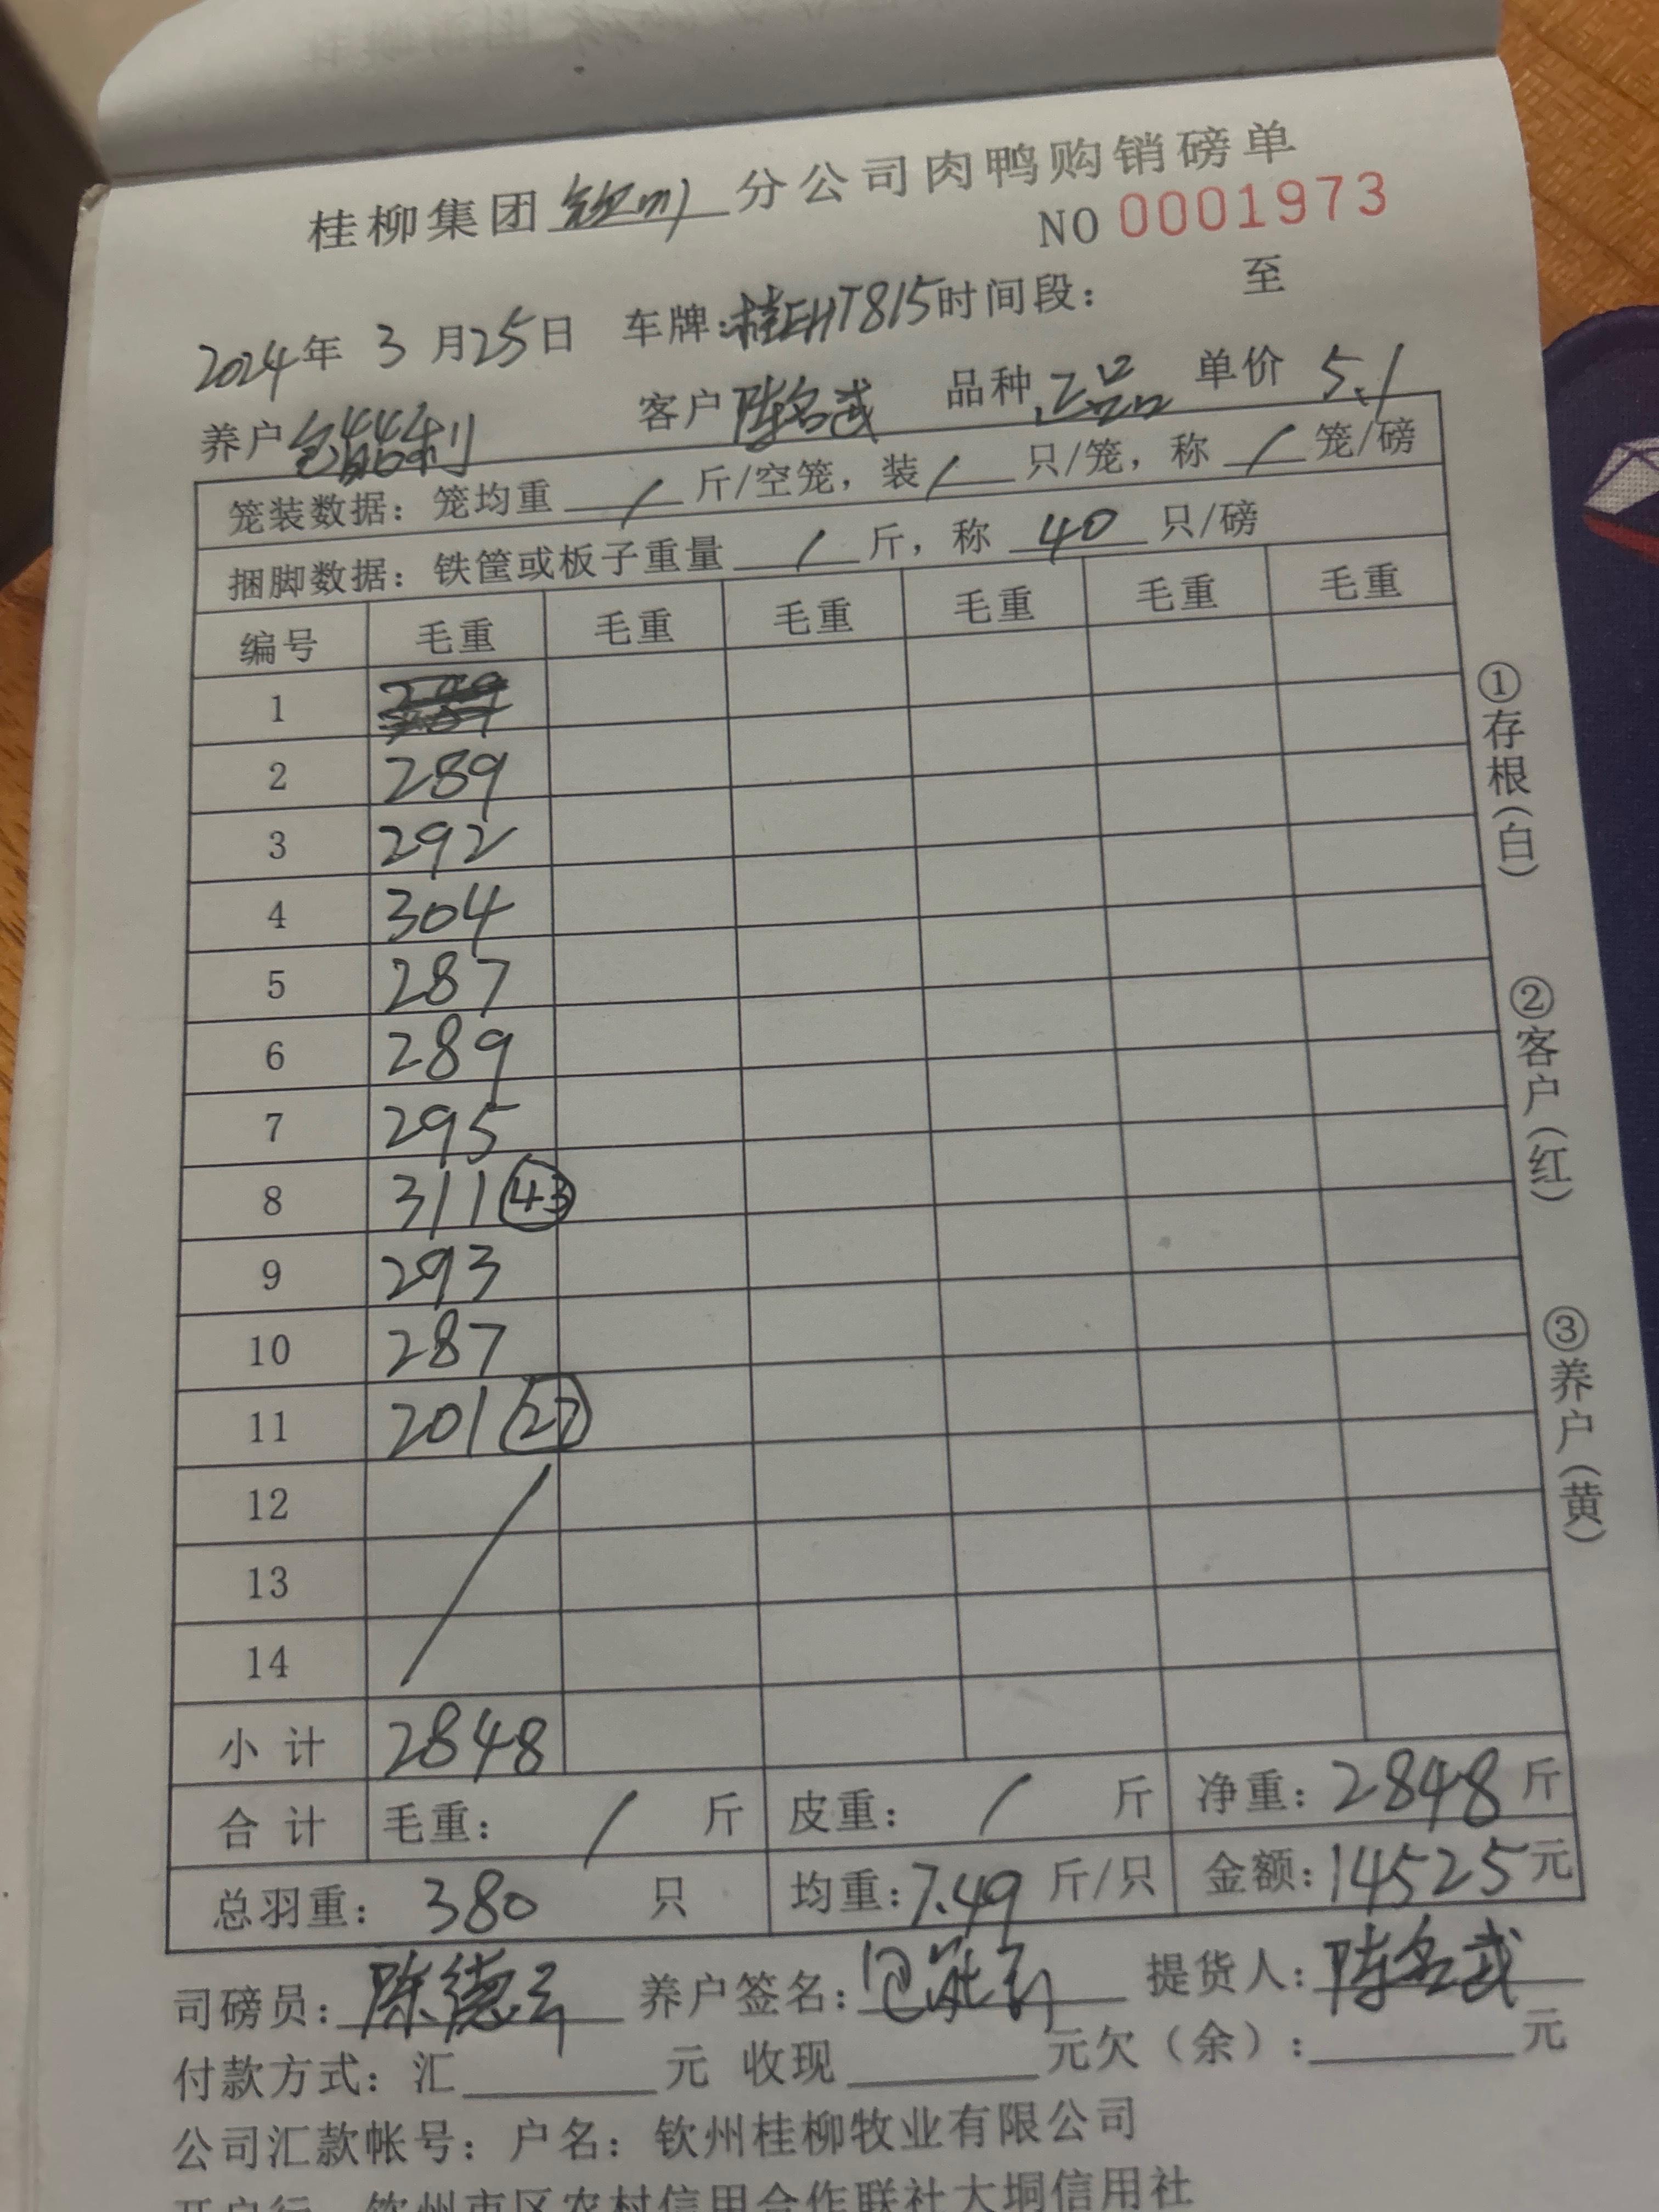 桂柳集团钦州分公司肉鸭购销磅单
NO 0001973
2024年 3月25日 车牌:桂EHT815时间段: 至
养户包能利 客户陈名武 品种正品 单价 5.1
笼装数据:笼均重 / 斤/空笼,装 / 只/笼,称 / 笼/磅
捆脚数据:铁筐或板子重量 / 斤,称 40 只/磅
编号 毛重 毛重 毛重 毛重 毛重 毛重
1
2 289
3 292
4 304
5 287
6 289
7 295
8 311 43
9 293
10 287
11 201 27
12
13
14
小计 2848
合计 毛重: / 斤 皮重: / 斤 净重:2848斤
总羽重: 380 只 均重:7.49 斤/只 金额:14525元
司磅员:陈德 养户签名:包能利 提货人:陈名武
付款方式:汇 元 收现 元欠(余): 元
公司汇款帐号:户名:钦州桂柳牧业有限公司
开户行 钦州市区农村信用合作联社大垌信用社
①存根(白)
②客户(红)
③养户(黄)